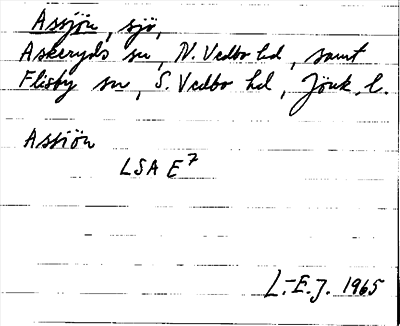 Assjön, sjö,
Askeryds sn, N. Vedbo hd, samt
Flisby sn, S. Vedbo hd, Jönk. l.
Assiön
LSA E7
L-E.J. 1965